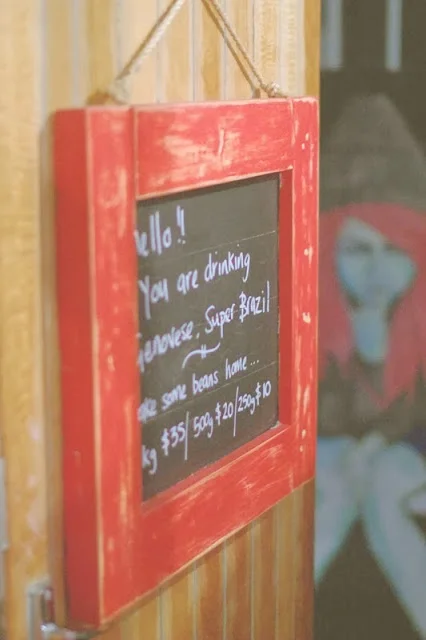 ello !!
You are drinking
enovese, Super Brazil
ake some beans home...
kg $35/ 500g $20/250g $10